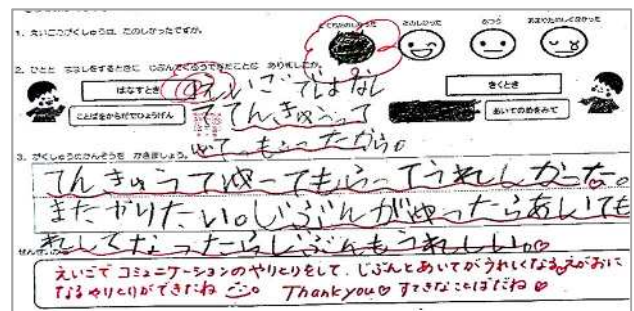 1. えいごのがくしゅうは、たのしかったですか。
とてもたのしかった
たのしかった
ふつう
あまりたのしくなかった
2. ひとと はなしをするときに じぶんで
ことは ありましたか。
はなすとき
きくとき
ことばをからだでひょうげん
あいてのめをみて
えいごではなし
てんきゅうって
ゆってもらったから。
3. がくしゅうのかんそうを かきましょう。
てんきゅうてゆってもらってうれしかった。
またやりたい。じぶんがゆったらあいても
れしてなったらじぶんもうれしい。
せんせい
えいごで コミュニケーションのやりとりをして、じぶんとあいてがうれしくなる♡えがおに
なるやりとりができたね Thank you♡ すてきなことばだね♡